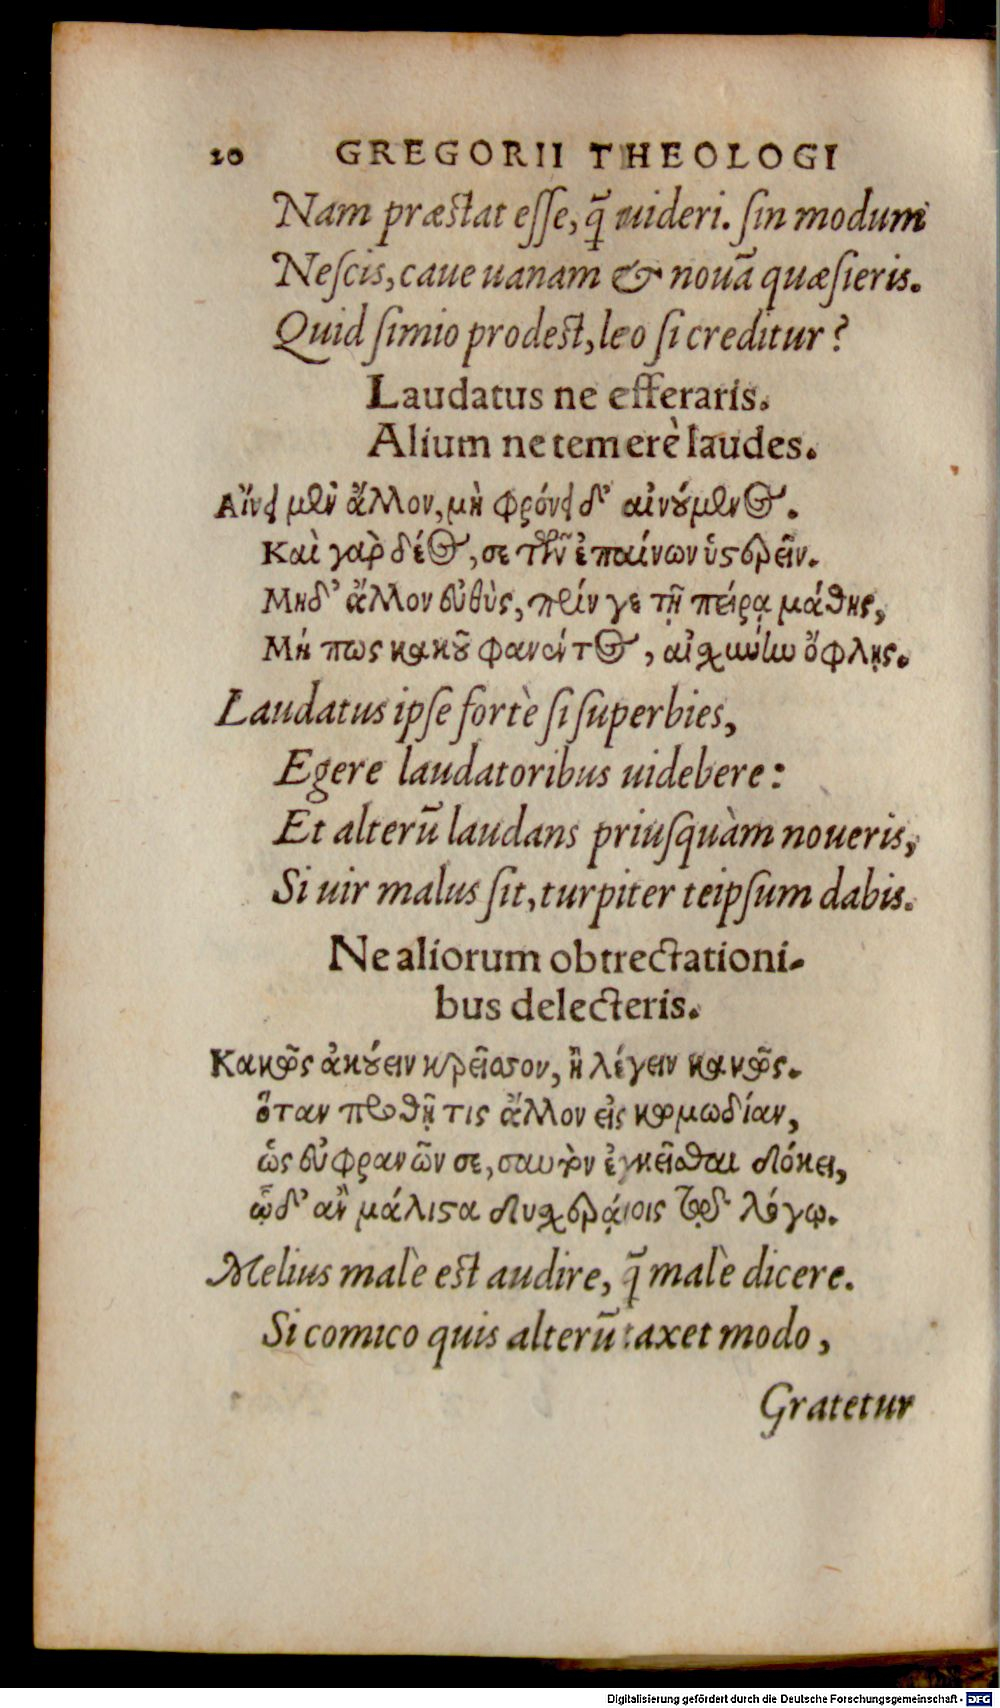 20 GREGORII THEOLOGI
Nam præstat esse, q̃ uideri. sin modum
Nescis, caue uanam & nouā quæsieris.
Quid simio prodest, leo si creditur?
Laudatus ne efferaris.
Alium ne temerè laudes.
Αἴνει μὲν ἄλλον, μὴ φρόνει δ' αἰνούμενος.
Καὶ γὰρ δέος, σε τῶν ἐπαίνων ὑστερεῖν.
Μηδ' ἄλλον εὐθὺς, πρίν γε τῇ πείρᾳ μάθῃς,
Μή πως κακοῦ φανέντος, αἰσχύνην ὄφλῃς.
Laudatus ipse fortè si superbies,
Egere laudatoribus uidebere:
Et alterū laudans priusquàm noueris,
Si uir malus sit, turpiter teipsum dabis.
Ne aliorum obtrectationi-
bus delecteris.
Κακῶς ἀκούειν κρεῖσσον, ἢ λέγειν κακῶς.
ὅταν προθῇ τις ἄλλον εἰς κωμωδίαν,
ὡς εὐφρανῶν σε, σαυτὸν ἐγκεῖσθαι δόκει,
ᾧδ' ἂν μάλιστα δυσχεράιοις τῷδε λόγῳ.
Melius malè est audire, q̃ malè dicere.
Si comico quis alterū taxet modo,
Gratetur
Digitalisierung gefördert durch die Deutsche Forschungsgemeinschaft - DFG